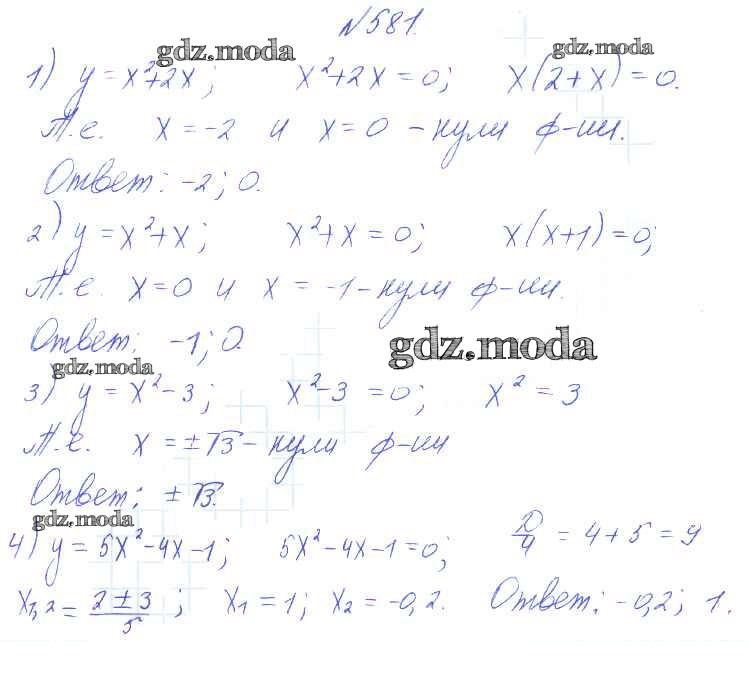 №581.
gdz.moda gdz.moda
1) y = x²+2x; x²+2x = 0; x(2+x) = 0.
Т.е. x = -2 и x = 0 - нули ф-ии.
Ответ: -2; 0.
2) y = x²+x; x²+x = 0; x(x+1) = 0;
Т.е. x = 0 и x = -1 - нули ф-ии.
Ответ: -1; 0.
gdz.moda
gdz.moda
3) y = x²-3; x²-3 = 0; x² = 3
Т.е. x = ±√3 - нули ф-ии
Ответ: ±√3.
gdz.moda
4) y = 5x²-4x-1; 5x²-4x-1=0; D/4 = 4+5 = 9
x₁,₂ = (2±3)/5; x₁ = 1; x₂ = -0,2. Ответ: -0,2; 1.